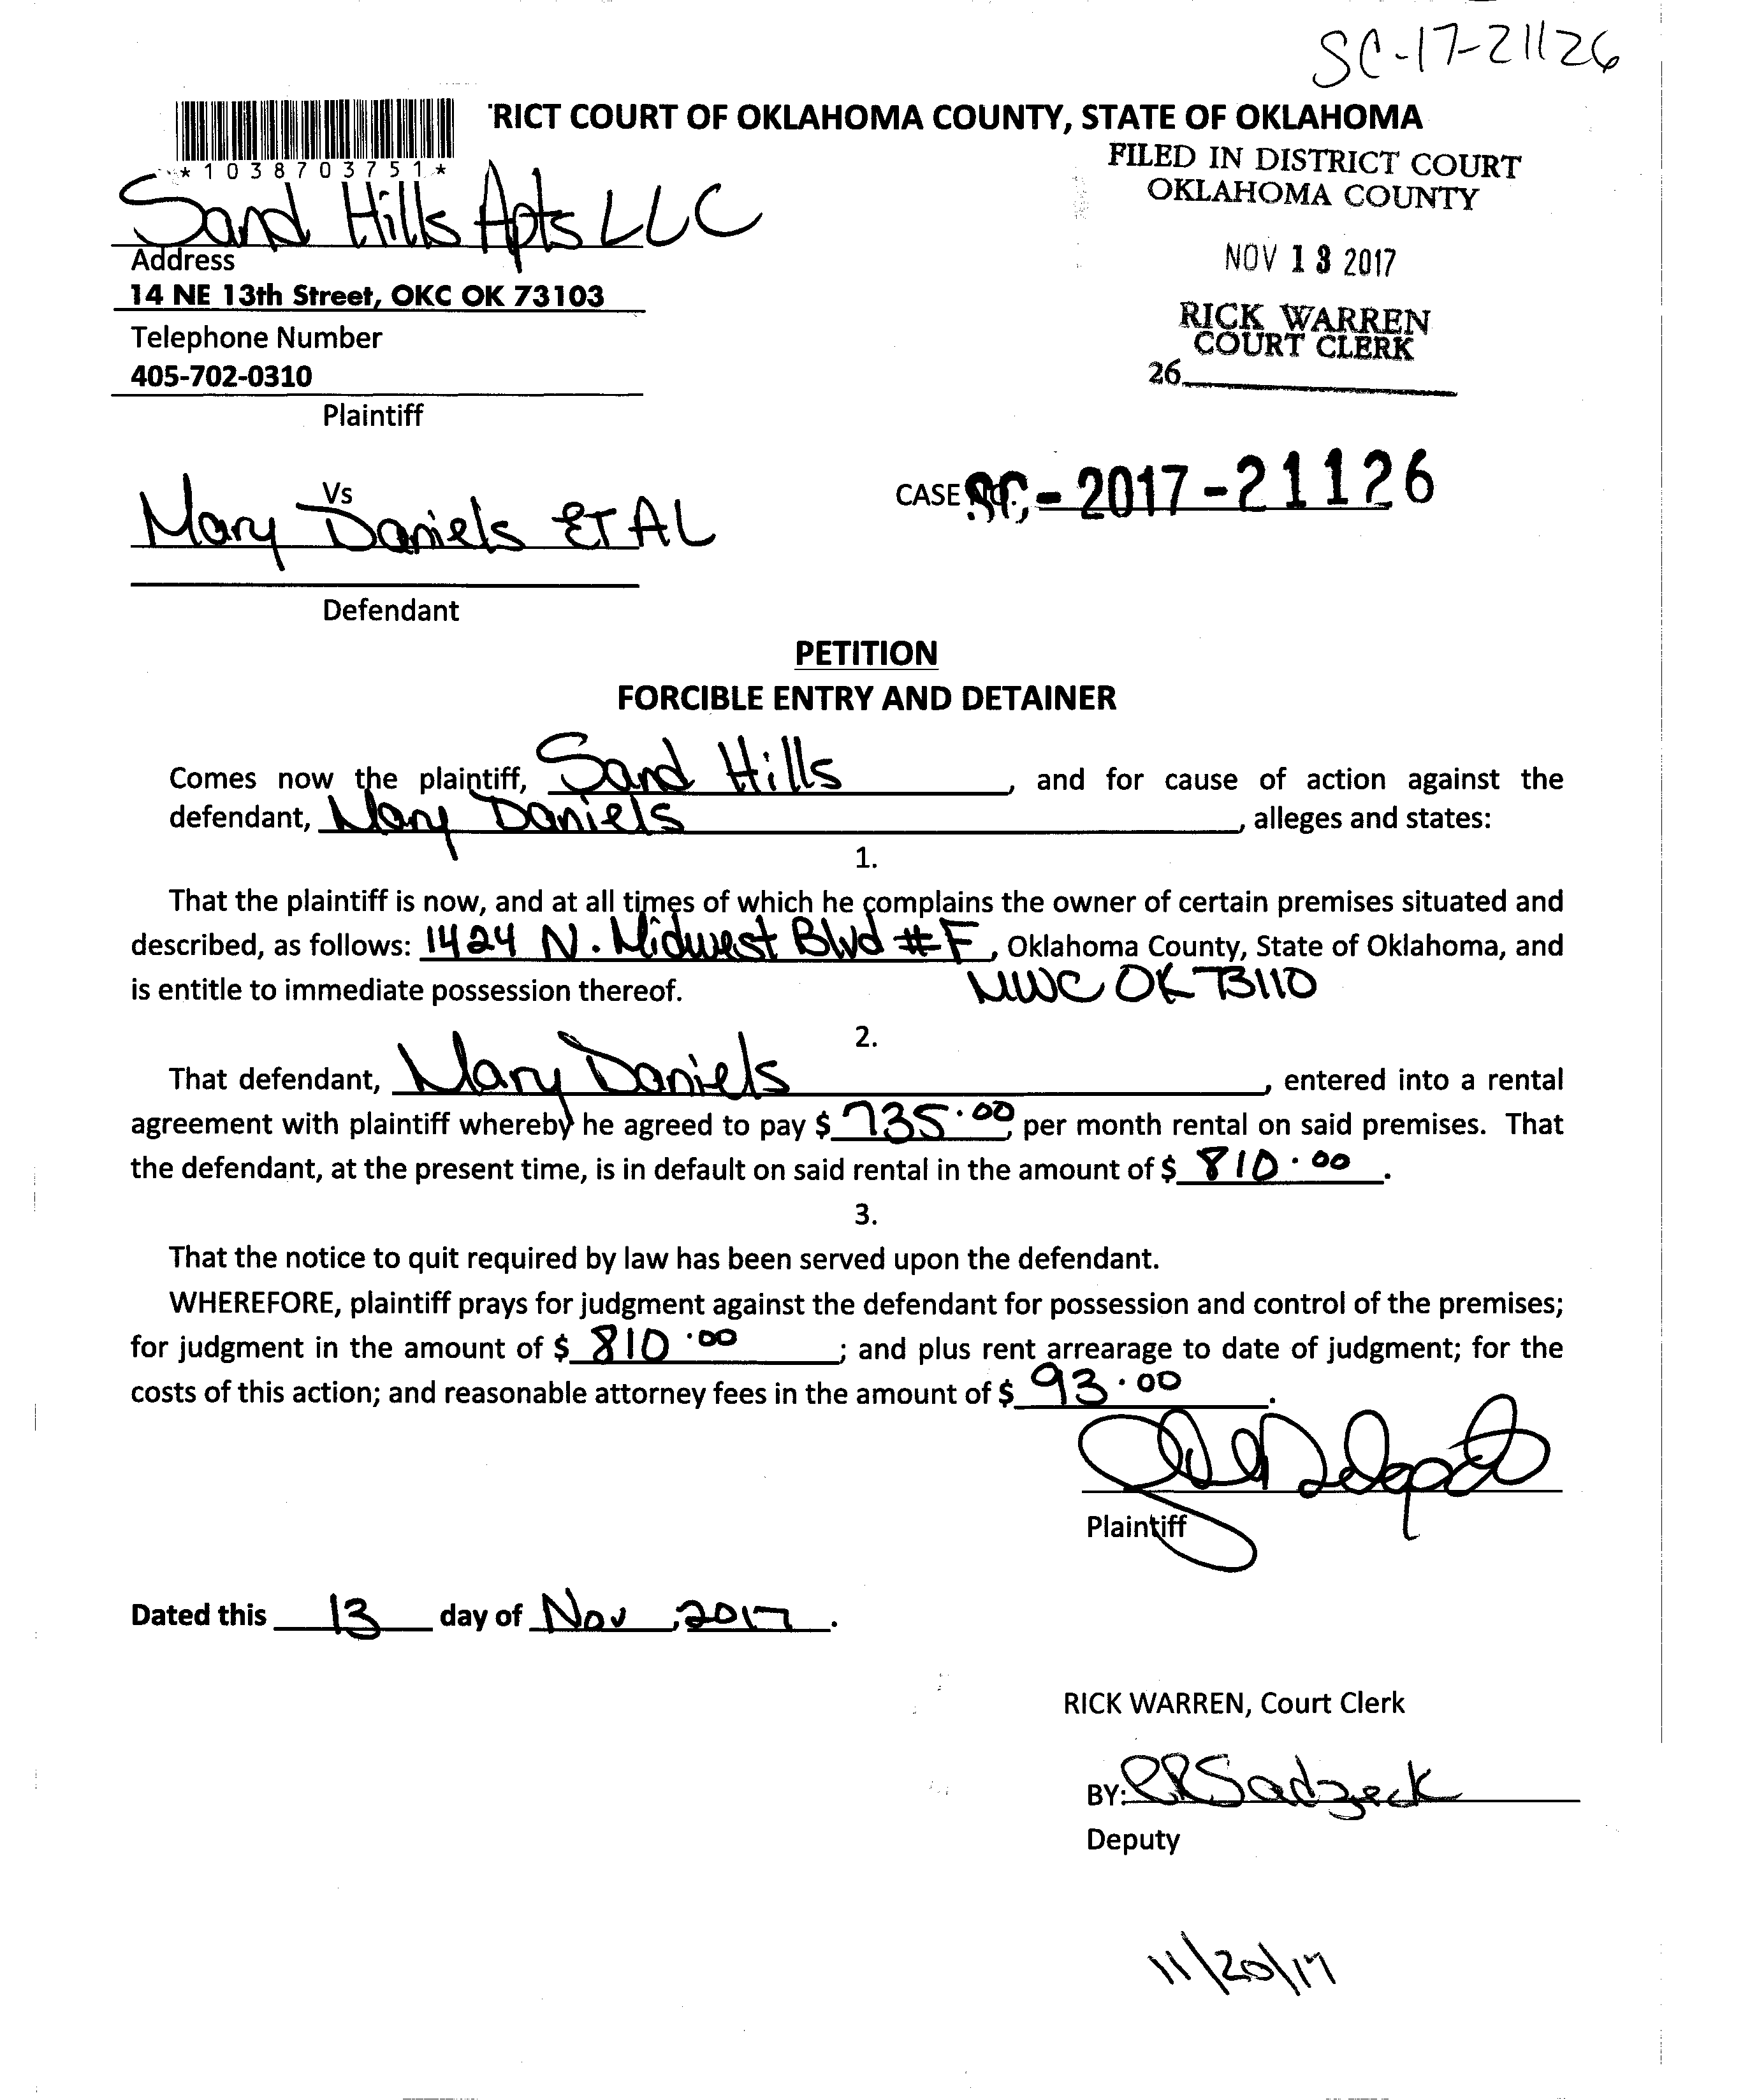 SC-17-21126
'RICT COURT OF OKLAHOMA COUNTY, STATE OF OKLAHOMA
*1038703751*
FILED IN DISTRICT COURT
OKLAHOMA COUNTY
Sand Hills Apts LLC
Address
NOV 13 2017
14 NE 13th Street, OKC OK 73103
RICK WARREN
COURT CLERK
Telephone Number
405-702-0310
26
Plaintiff
Vs
CASE NO. SC-2017-21126
Mary Daniels ET AL
Defendant
PETITION
FORCIBLE ENTRY AND DETAINER
Comes now the plaintiff, Sand Hills, and for cause of action against the
defendant, Mary Daniels, alleges and states:
1.
That the plaintiff is now, and at all times of which he complains the owner of certain premises situated and
described, as follows: 1424 N. Midwest Blvd #F, Oklahoma County, State of Oklahoma, and
is entitle to immediate possession thereof. MWC OK 73110
2.
That defendant, Mary Daniels, entered into a rental
agreement with plaintiff whereby he agreed to pay $ 735.00, per month rental on said premises. That
the defendant, at the present time, is in default on said rental in the amount of $ 810.00.
3.
That the notice to quit required by law has been served upon the defendant.
WHEREFORE, plaintiff prays for judgment against the defendant for possession and control of the premises;
for judgment in the amount of $ 810.00; and plus rent arrearage to date of judgment; for the
costs of this action; and reasonable attorney fees in the amount of $ 93.00.
Plaintiff
Dated this 13 day of Nov, 2017.
RICK WARREN, Court Clerk
BY:
Deputy
11/20/17